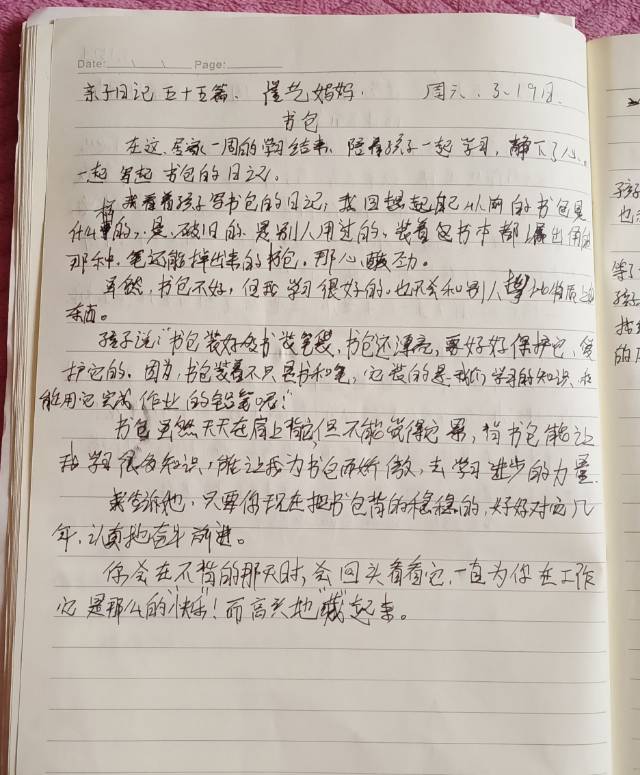 Date: Page:
亲子日记 五十五篇. 佳艺妈妈. 周六. 3.19日.
书包
在这. 居家一周的学习结束. 陪着孩子一起学习, 静下了心.
一起写起书包的日记.
我看着孩子写书包的日记, 我回想起自己从前的书包是
什么的,. 是. 破旧的. 是别人用过的. 装着包书本都露出
那种. 笔还能掉出来的书包. 那心酸劲。
虽然, 书包不好, 但我学习很好的. 也不会和别人攀比物质上
东西。
孩子说:"书包装好多书装笔袋, 书包还漂亮, 要好好保护它, 爱
护它的. 因为, 书包装着不只是书和笔, 它装的是我们学习的知识. 和
能用它完成作业的铅笔呢!"
书包虽然天天在肩上背应但不能觉得它累, 背书包能让
我学很多知识, 能让我为书包而娇傲, 去学习进步的力量.
我告诉他, 只要你现在把书包背的稳稳的, 好好对它几
年, 认真地奋斗前进。
你会在不背的那天时, 会回头看看它, 一直为你在工作
它是那么的"快乐"! 而高兴地"藏"起来。
孩子
也
等
孩子
的